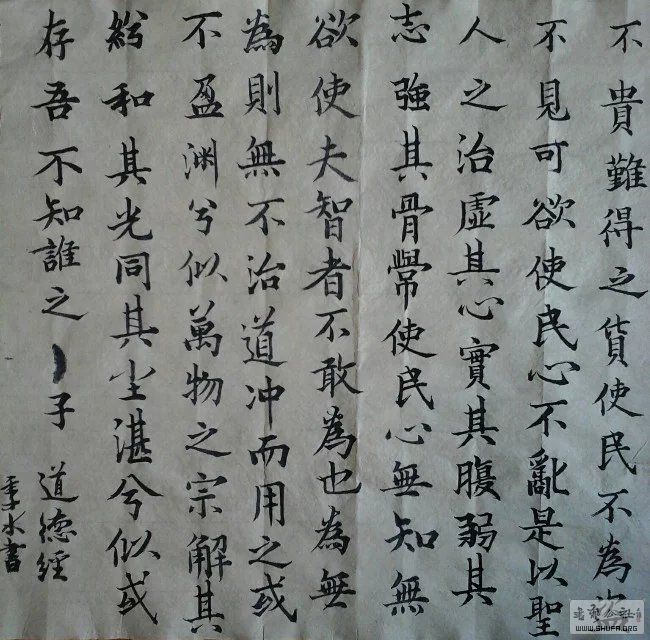 不貴難得之貨使民不為
不見可欲使民心不亂是以聖
人之治虛其心實其腹弱其
志強其骨常使民心無知無
欲使夫智者不敢為也為無
為則無不治道冲而用之或
不盈渊兮似萬物之宗解其
紛和其光同其尘湛兮似或
存吾不知誰之子 道德經
季水書
WWW.SHUFA.ORG